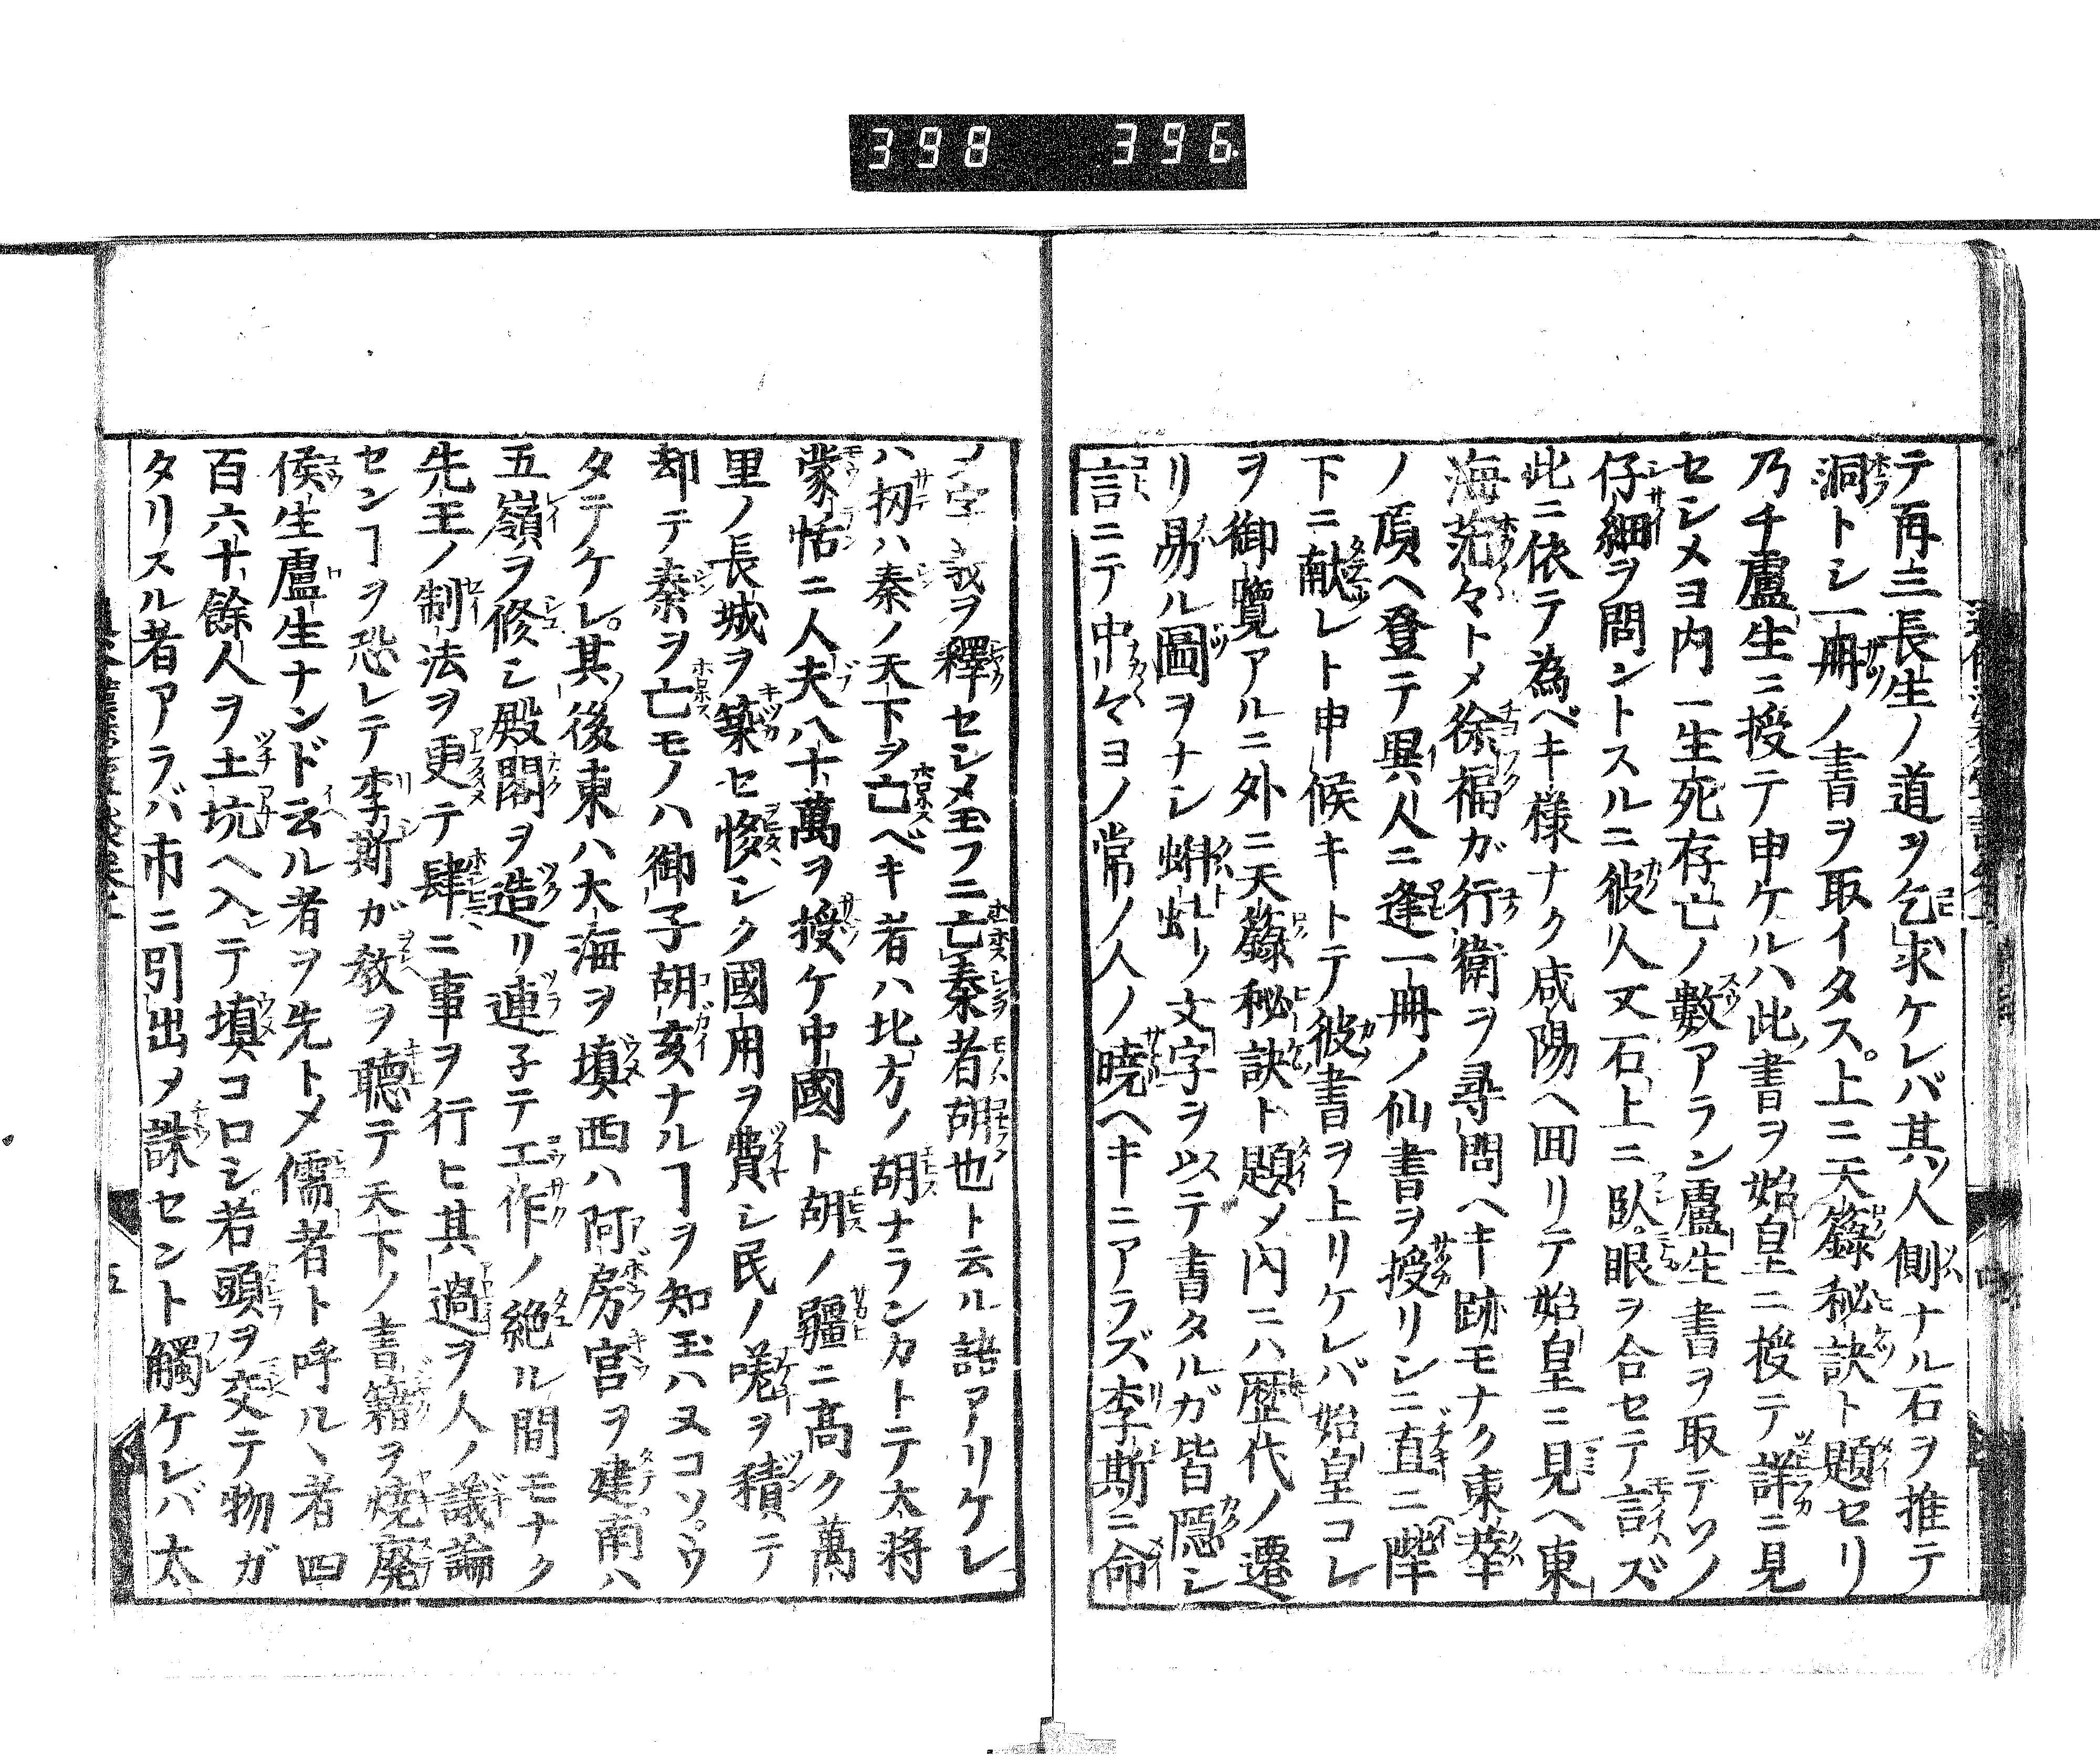 398 396
テ再三長生ノ道ヲ乞求ケレバ其人側ナル石ヲ推テ
洞トシ一冊ノ書ヲ取イタス。上ニ天籙秘訣ト題セリ
乃チ盧生ニ授テ申ケルハ此書ヲ始皇ニ授テ詳ニ見
セシメヨ内一生死存亡ノ數アラン盧生書ヲ取テソノ
仔細ヲ問ントスルニ彼人又石上ニ臥眼ヲ合セテ言ズ
此ニ依テ為ベキ様ナク咸陽ヘ囬リテ始皇ニ見ヘ東
海茫々トメ徐福ガ行衛ヲ尋問ヘキ跡モナク東華
ノ頂ヘ登テ異人ニ逢一冊ノ仙書ヲ授リシニ直ニ陛
下ニ献レト申候キトテ彼書ヲ上リケレバ始皇コレ
ヲ御覽アルニ外ニ天籙秘訣ト題メ内ニハ歴代ノ遷
リ易ル圖ヲナシ蝌蚪ノ文字ヲ以テ書タルガ皆隱シ
言ニテ中々ヨノ常ノ人ノ曉ヘキニアラズ李斯ニ命
ノ字義ヲ釋セシメ玉フニ亡秦者胡也ト云ル語アリケレ
ハ扨ハ秦ノ天下ヲ亡ベキ者ハ北方ノ胡ナランカトテ太将
蒙恬ニ人夫八十萬ヲ授ケ中國ト胡ノ疆ニ高ク萬
里ノ長城ヲ築セ惨シク國用ヲ費シ民ノ嘆ヲ積テ
却テ秦ヲ亡モノハ御子胡亥ナルヿヲ知玉ハヌコソ。ウ
タテケレ。其後東ハ大海ヲ填西ハ阿房宮ヲ建。南ハ
五嶺ヲ修シ殿閣ヲ造リ連子テ工作ノ絶ル間モナク
先王ノ制法ヲ更テ肆ニ事ヲ行ヒ其過ヲ人ノ議論
センヿヲ恐レテ李斯ガ教ヲ聴テ天下ノ書籍ヲ焼廃
侯生盧生ナンド云ル者ヲ先トメ儒者ト呼ルヽ者四
百六十餘人ヲ土坑ヘ入テ填コロシ若頭ヲ交テ物ガ
タリスル者アラバ市ニ引出メ誅セント觸ケレバ太
五